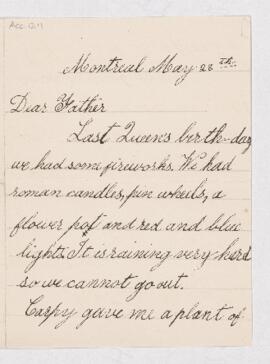 Acc. 1217
Montreal May 28th.
Dear Father
Last Queen's berth-day
we had some fireworks. We had
roman candles, pin wheels, a
flower pot and red and blue
lights. It is raining very hard
so we cannot go out.
Carpy gave me a plant of